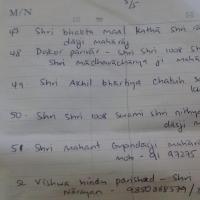 M/N
3/5
47 Shri bhakta maal Katha shri
dasji maharaj
48 Dakor parivar - Shri Shri 1008 Shri
Shri madhavacharya ji mah
49 Shri Akhil bhartiya chatuh
50- Shri Shri 1008 Swami shri nithya
dasji m
51 Shri Mahant Gyandasji mahara
mob - 91 97275
52 Vishwa hindu parishad - Shri
Narayan - 9850368579 /